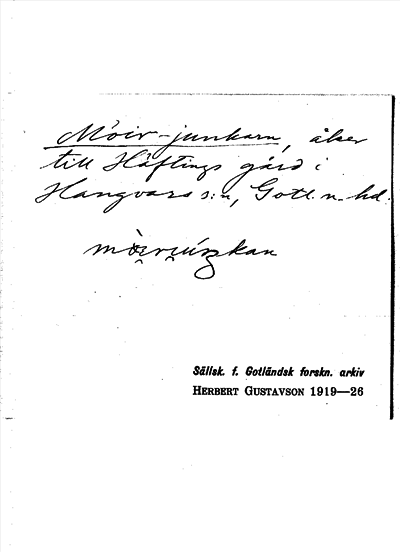 Moir-junkarn, åker
till Häftings gård i
Hangvars s:n, Gotl. n. hd.
Sällsk. f. Gotländsk forskn. arkiv
HERBERT GUSTAVSON 1919—26